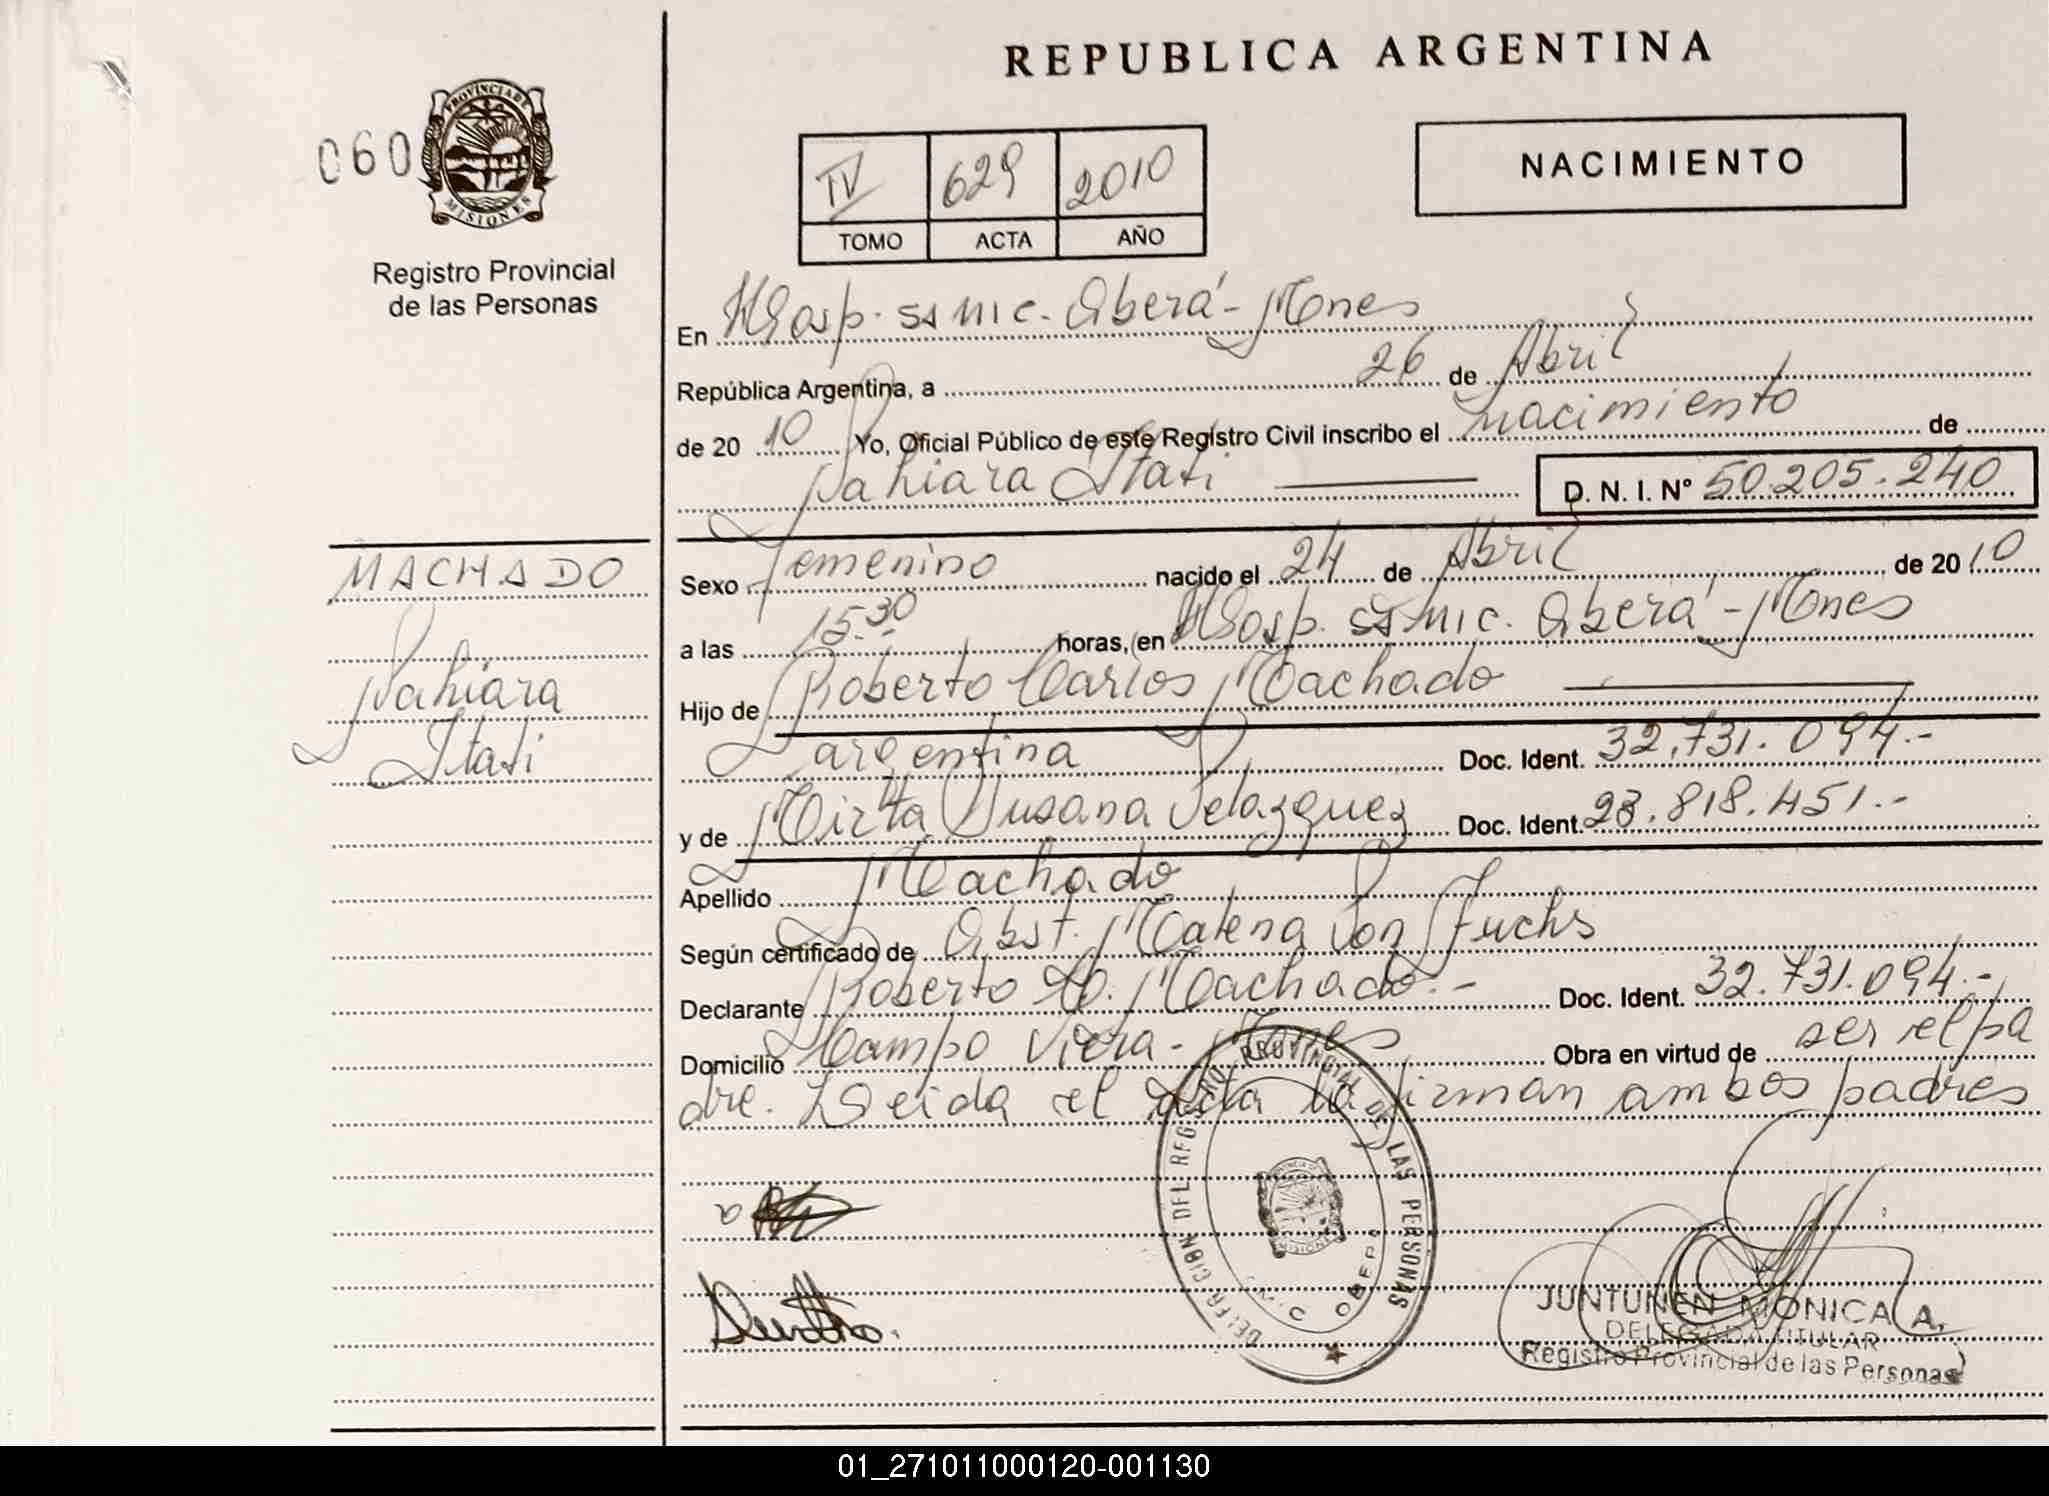 REPUBLICA ARGENTINA
060
PROVINCIA DE
MISIONES
Registro Provincial
de las Personas
IV 629 2010
TOMO ACTA AÑO
NACIMIENTO
En Hosp. ss mc. Oberá - Mnes
República Argentina, a 26 de Abril
de 20 10 Yo, Oficial Público de este Registro Civil inscribo el nacimiento de
Yahiara Itati D. N. I. Nº 50.205.240
MACHADO
Yahiara
Itati
Sexo Femenino nacido el 24 de Abril de 20 10
a las 15.30 horas, en Hosp. ss mc. Oberá - Mnes
Hijo de Roberto Carlos Machado
argentina Doc. Ident. 32.731.094.-
y de Mirta Susana Velazquez Doc. Ident. 23.818.451.-
Apellido Machado
Según certificado de Obst. Malena Von Fuchs
Declarante Roberto C. Machado.- Doc. Ident. 32.731.094.-
Domicilio Campo Viera - Mnes Obra en virtud de ser el pa
dre. Leida el acta la firman ambos padres
DELEGACION DEL REGISTRO PROVINCIAL DE LAS PERSONAS
MISIONES
OBERA
JUNTUNEN MONICA A.
DELEGADA TITULAR
Registro Provincial de las Personas
01_271011000120-001130